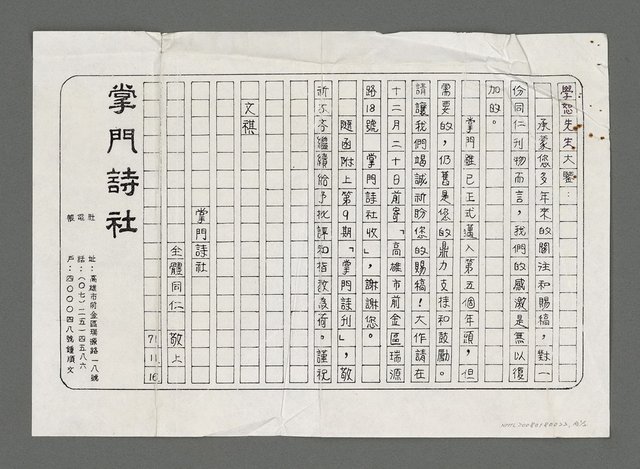 學恕先生大鑒：
承蒙您多年來的關注和賜稿，對一
份同仁刊物而言，我們的感激是無以復
加的。
掌門雖已正式邁入第五個年頭，但
需要的，仍舊是您的鼎力支持和鼓勵。
請讓我們竭誠祈盼您的賜稿！大作請在
十二月二十日前寄「高雄市前金區瑞源
路18號　掌門詩社收」，謝謝您。
隨函附上第9期「掌門詩刊」，敬
祈　繼續給予批評和指改為荷。謹祝
文祺
掌門詩社
全體同仁　敬上
71.11.16
掌門詩社
社　址：高雄市前金區瑞源路一八號
電　話：（〇七）二五一四五八六
帳　戶：四〇〇〇四八號鍾順文